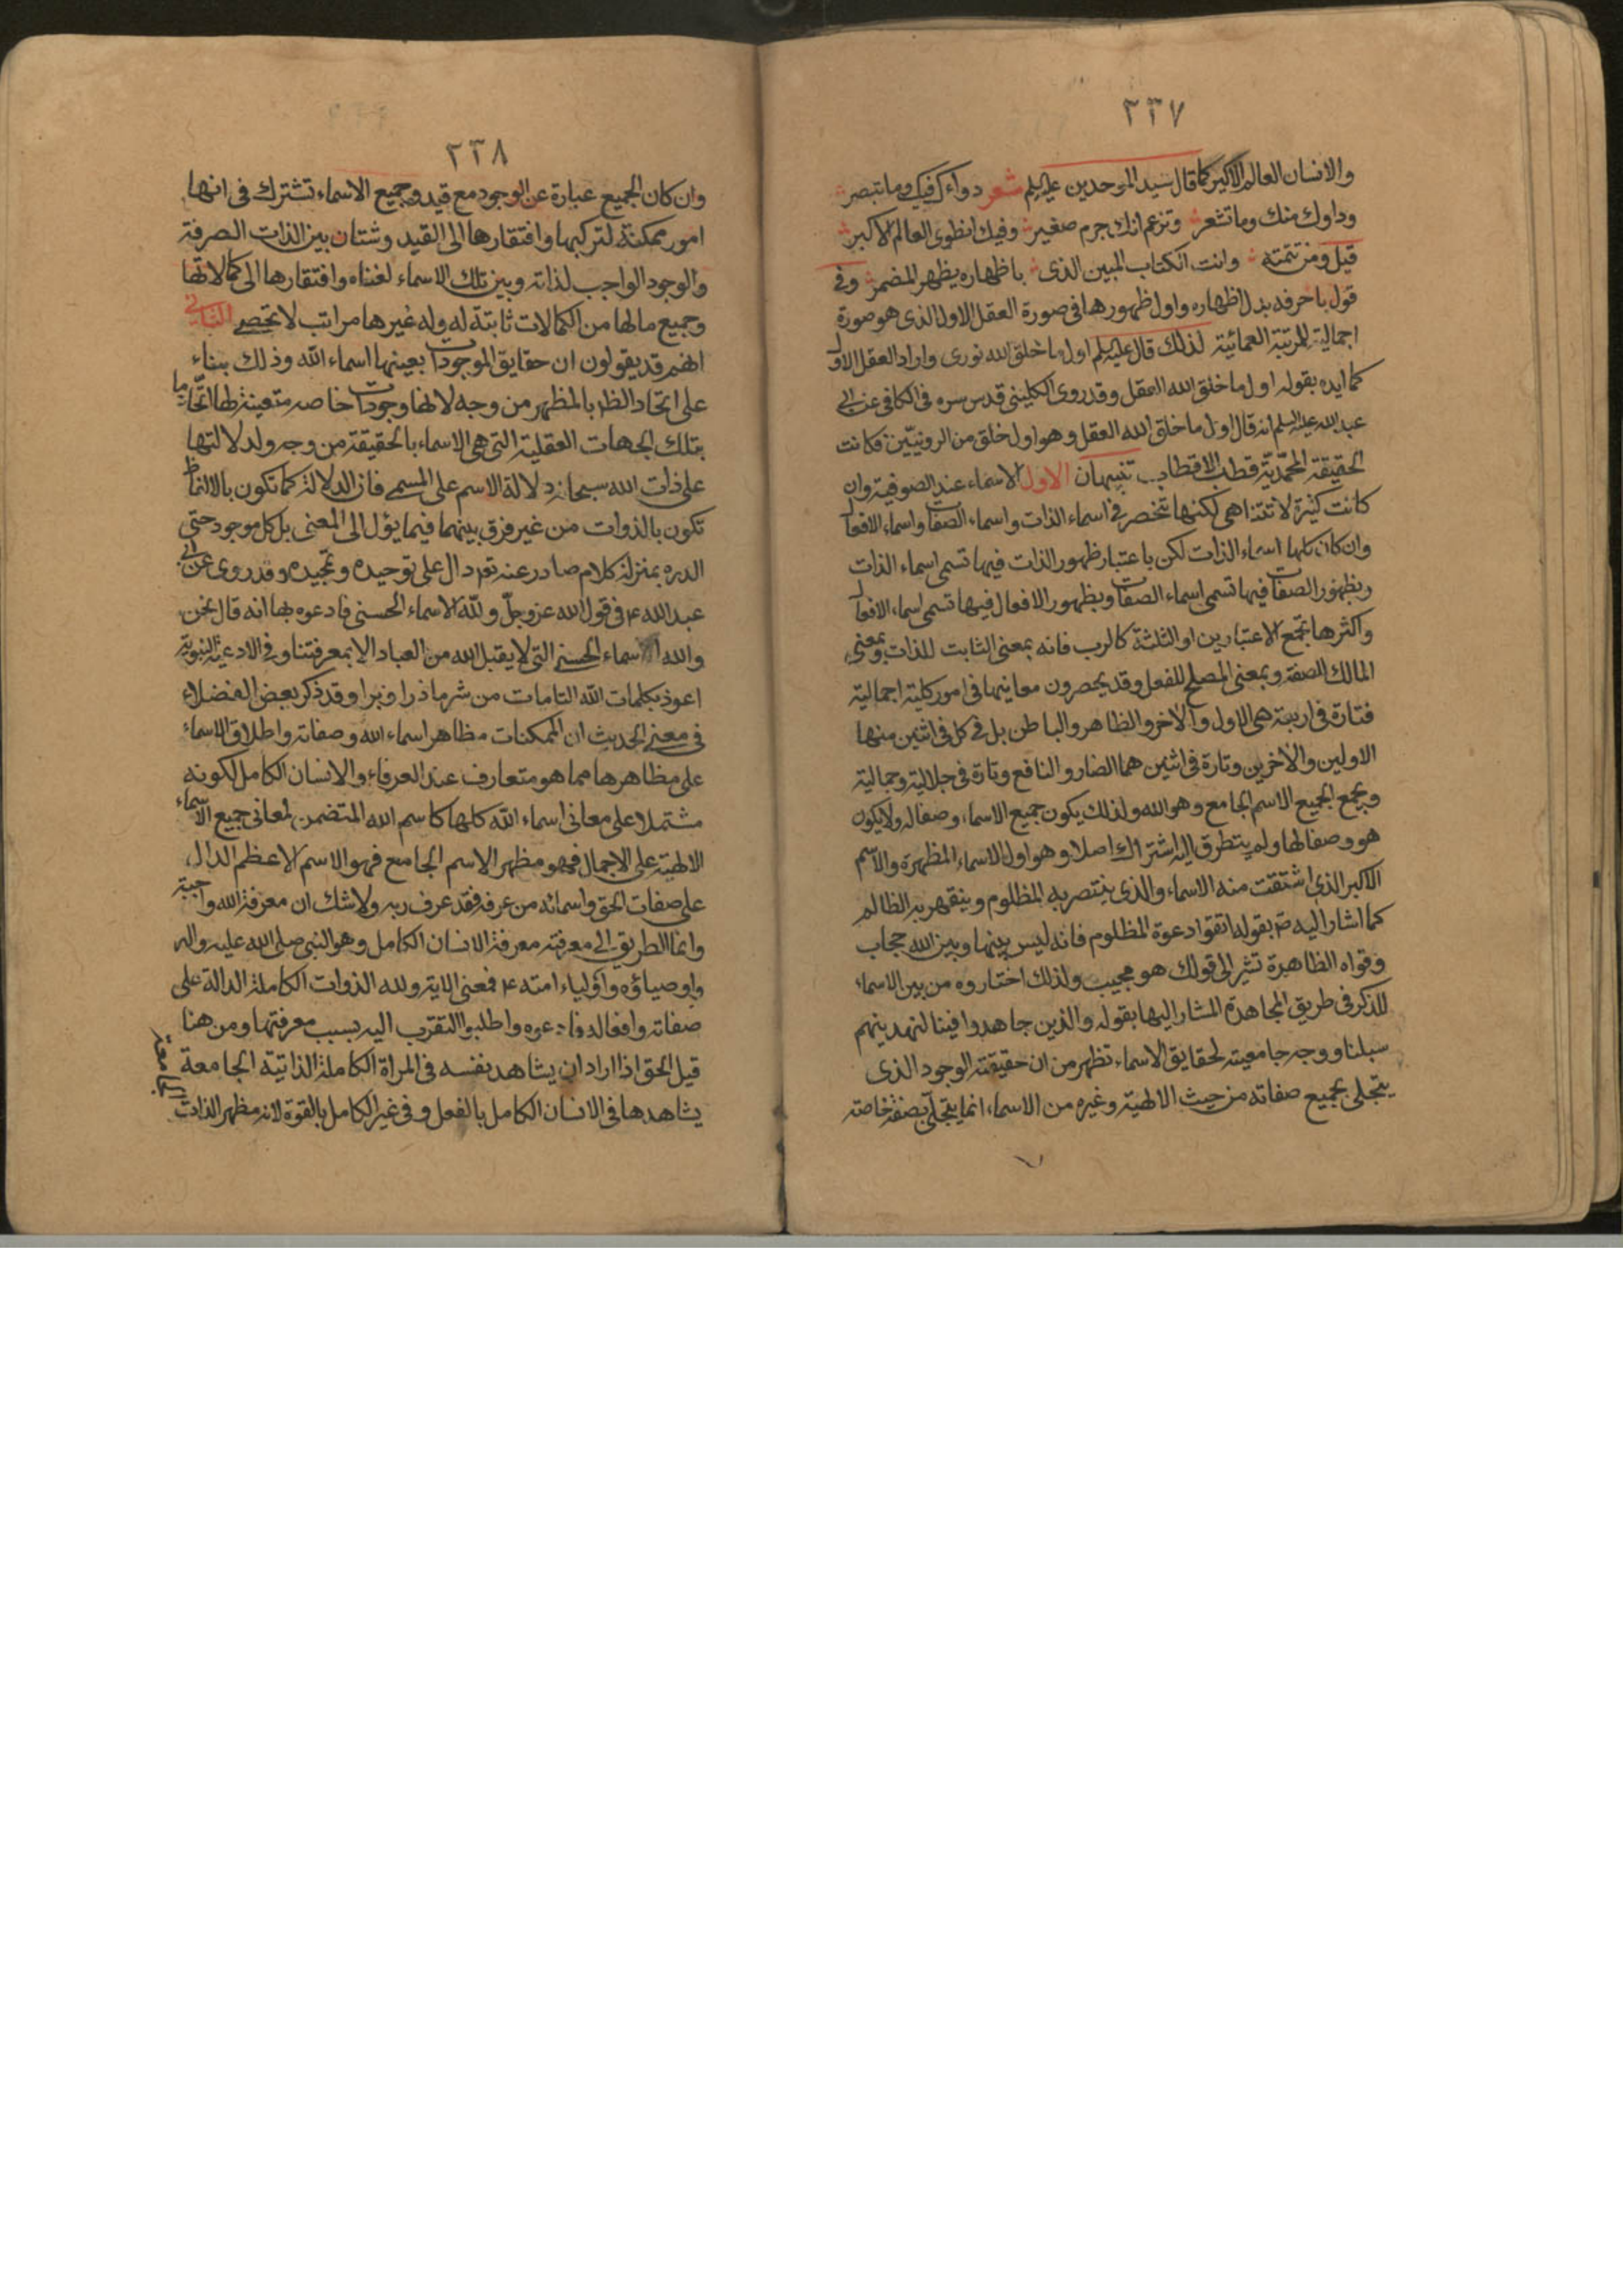 ٢٣٧
والانسان العالم الاكبر كما قال سيد الموحدين عليه السلم شعر دواءك فيك وما تبصر
وداوك منك وما تشعر وتزعم انك جرم صغير وفيك انطوى العالم الاكبر
قيل ومن تتمته وانت الكتاب المبين الذى باظهاره يظهر المضمر وفى
قول باحرفه بدل اظهاره واول ظهورها فى صورة العقل الاول الذى هو صورة
اجمالية للمرتبة العمائية لذلك قال عليه السلم اول ما خلق الله نورى واراد العقل الاول
كما ايده بقوله اول ما خلق الله العقل وقد روى الكلينى قدس سره فى الكافى عن ابى
عبد الله عليه السلم انه قال اول ما خلق الله العقل وهو اول خلق من الروحانيين فكانت
الحقيقة المحمدية قطب الاقطاب تنبيهان الاول الاسماء عند الصوفية وان
كانت كثيرة لا تتناهى لكنها تنحصر فى اسماء الذات واسماء الصفات واسماء الافعال
وان كان كلها اسماء الذات لكن باعتبار ظهور الذات فيها تسمى اسماء الذات
وبظهور الصفات فيها تسمى اسماء الصفات وبظهور الافعال فيها تسمى اسماء الافعال
واكثرها تجمع الاعتبارين او الثلثة كالرب فانه بمعنى الثابت للذات وبمعنى
المالك للصفة وبمعنى المصلح للفعل وقد يحصرون معانيها فى امور كلية اجمالية
فتارة فى اربعة هى الاول والاخر والظاهر والباطن بل فى كل فى اثنين منها
الاولين والاخرين وتارة فى اثنين هما الضار والنافع وتارة فى جلالية وجمالية
ويجمع الجميع الاسم الجامع وهو الله ولذلك يكون جميع الاسماء وصفا له ولا يكون
هو وصفا لها ولم يتطرق اليه اشتراك اصلا وهو اول الاسماء المظهرة والاسم
الاكبر الذى اشتقت منه الاسماء والذى ينتصر به المظلوم وينقهر به الظالم
كما اشار اليه ص بقوله اتقوا دعوة المظلوم فانه ليس بينها وبين الله حجاب
وقواه الظاهرة تشير الى قولك هو مجيب ولذلك اختاروه من بين الاسماء
للذكر فى طريق المجاهدة المشار اليها بقوله والذين جاهدوا فينا لنهدينهم
سبلنا ووجه جامعيته لحقايق الاسماء تظهر من ان حقيقة الوجود الذى
يتجلى بجميع صفاته من حيث الالهية وغيره من الاسماء انما يتجلى بصفة خاصة
٢٣٨
وان كان الجميع عبارة عن الوجود مع قيد وجميع الاسماء تشترك فى انها
امور ممكنة لتركبها وافتقارها الى القيد وشتان بين الذات الصرفة
والوجود الواجب لذاته وبين تلك الاسماء لغناه وافتقارها الى كمالاتها
وجميع مالها من الكمالات ثابتة له وله غيرها مراتب لا تحصى الثانى
انهم قد يقولون ان حقايق الموجودات بعينها اسماء الله وذلك بناء
على اتحاد الظاهر بالمظهر من وجه لانها وجودات خاصه متعينة لها اتحاد ما
بتلك الجهات العقلية التى هى الاسماء بالحقيقة من وجه ولدلالتها
على ذات الله سبحانه دلالة الاسم على المسمى فان الدلالة كما تكون بالالفاظ
تكون بالذوات من غير فرق بينهما فيما يؤل الى المعنى بل كل موجود حتى
الدره بمنزلة كلام صادر عنه تعم دال على توحيده وتمجيده وقد روى عن ابى
عبد الله ع فى قول الله عز وجل ولله الاسماء الحسنى فادعوه بها انه قال نحن
والله الاسماء الحسنى التى لا يقبل الله من العباد الا بمعرفتنا وفى الادعية النبوية
اعوذ بكلمات الله التامات من شر ما ذرا وبرا وقد ذكر بعض الفضلاء
فى معنى الحديث ان الممكنات مظاهر اسماء الله وصفاته واطلاق الاسماء
على مظاهرها مما هو متعارف عند العرفاء والانسان الكامل لكونه
مشتملا على معانى اسماء الله كلها كاسم الله المتضمن لمعانى جميع الاسماء
الالهية على الاجمال فهو مظهر الاسم الجامع فهو الاسم الاعظم الدال
على صفات الحق واسمائه من عرفه فقد عرف ربه ولا شك ان معرفة الله واجبة
وانما الطريق الى معرفته معرفة الانسان الكامل وهو النبى صلى الله عليه واله
واوصياؤه واولياء امته ع فمعنى الاية ولله الذوات الكاملة الدالة على
صفاته وافعاله فادعوه واطلبوا التقرب اليه بسبب معرفتها ومن هنا
قيل الحق اذا اراد ان يشاهد نفسه فى المراة الكاملة الذاتية الجامعة
يشاهدها فى الانسان الكامل بالفعل وفى غير الكامل بالقوة لانه مظهر الذات
الجامعة